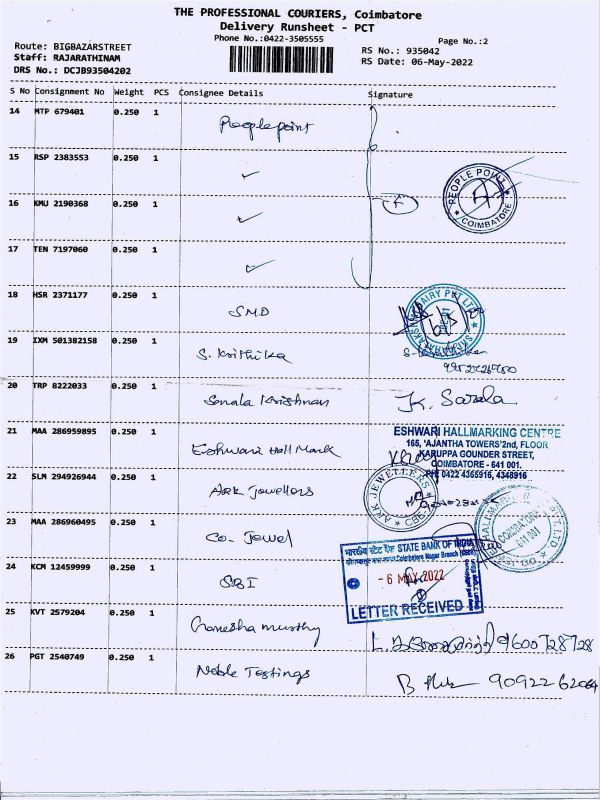 THE PROFESSIONAL COURIERS, Coimbatore
Delivery Runsheet - PCT
Phone No.:0422-3505555
Page No.:2
Route: BIGBAZARSTREET
RS No.: 935042
Staff: RAJARATHINAM
RS Date: 06-May-2022
DRS No.: DCJB93504202
S No Consignment No Weight PCS Consignee Details Signature
14 MTP 679401 0.250 1 Peoplepoint
15 RSP 2383553 0.250 1 ✓
PEOPLE POINT
COIMBATORE
16 KMU 2190368 0.250 1 ✓
17 TEN 7197060 0.250 1 ✓
18 HSR 2371177 0.250 1 SMD
DAIRY PVT LTD
19 IXM 501382158 0.250 1 S. Krithika
20 TRP 8222033 0.250 1 Sarala Krishnan K. Sarala
21 MAA 286959895 0.250 1 Eshwari Hall Mark
ESHWARI HALLMARKING CENTRE
165, 'AJANTHA TOWERS' 2nd, FLOOR
KARUPPA GOUNDER STREET,
COIMBATORE - 641 001.
PH 0422 4365916, 4348916
22 SLM 294926944 0.250 1 A&K Jewellers
JEWELLERS
23 MAA 286960495 0.250 1 Co- Jewel
641 001
24 KCM 12459999 0.250 1 SBI
भारतीय स्टेट बैंक STATE BANK OF INDIA
- 6 MAY 2022
LETTER RECEIVED
25 KVT 2579204 0.250 1 Ganesha murthy 9600728728
26 PGT 2540749 0.250 1 Noble Testings 9092262064